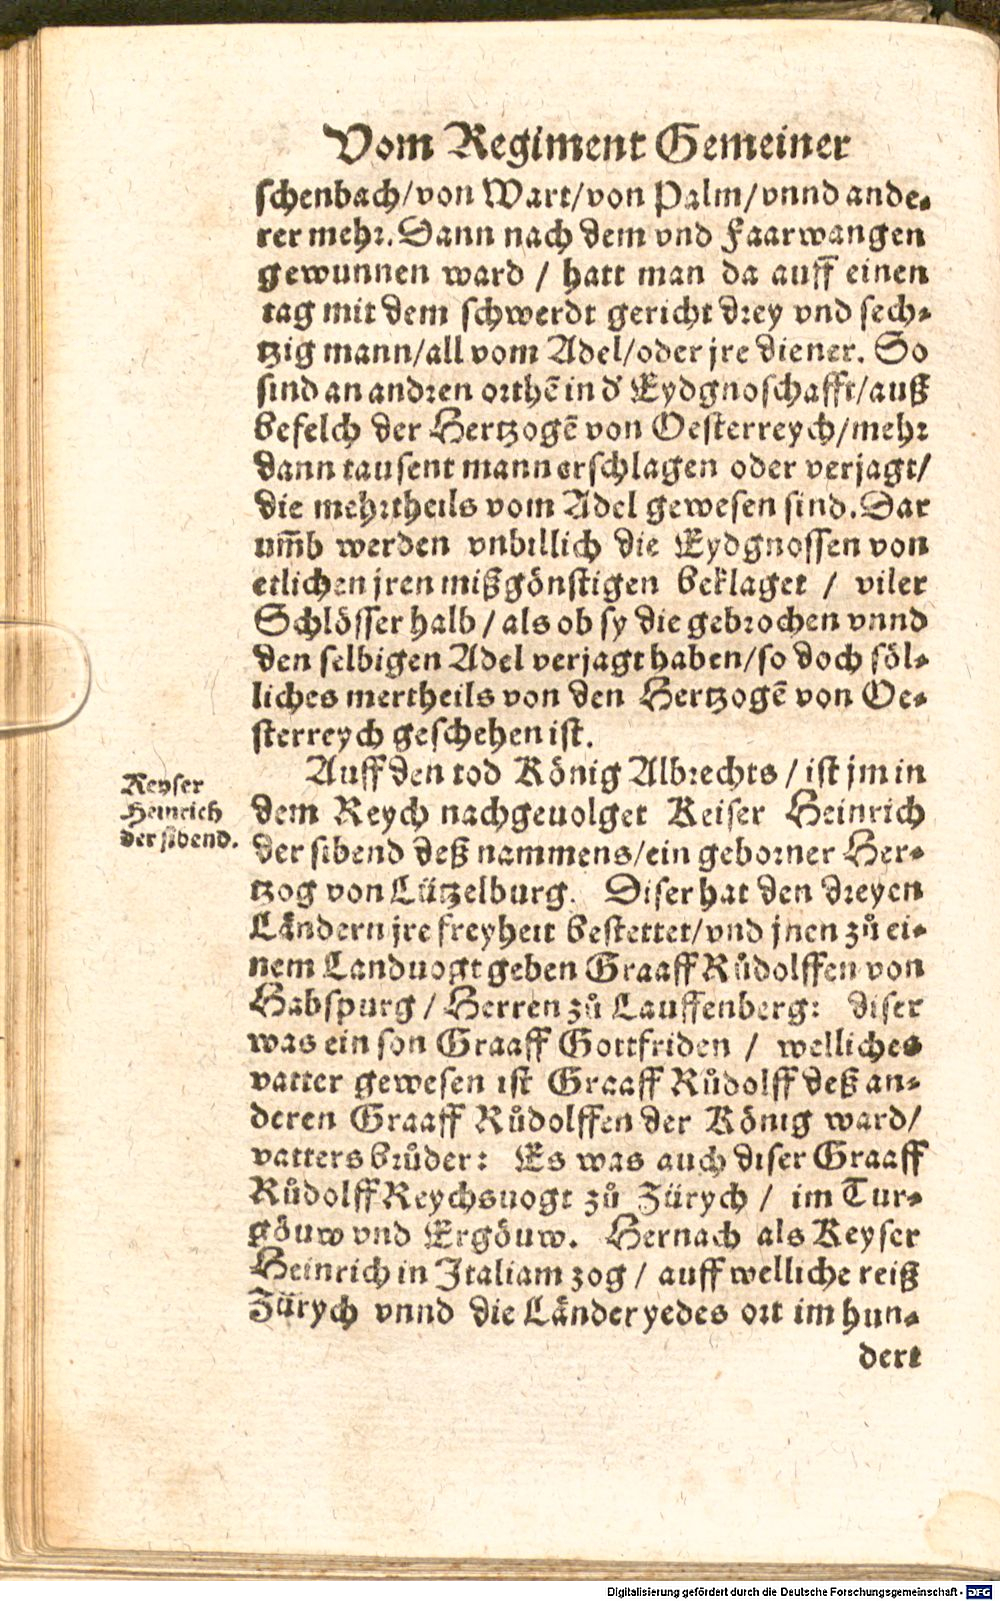 Vom Regiment Gemeiner
schenbach/von Wart/von Palm/vnnd ande-
rer mehr. Dann nach dem vnd Faarwangen
gewunnen ward / hatt man da auff einen
tag mit dem schwerdt gericht drey vnd sech-
tzig mann/all vom Adel/oder jre diener. So
sind an andren orthē in d' Eydgnoschafft/auß
befelch der Hertzogē von Oesterreych/mehr
dann tausent mann erschlagen oder verjagt/
die mehrtheils vom Adel gewesen sind. Dar
um̄b werden vnbillich die Eydgnossen von
etlichen jren mißgönstigen beklaget / viler
Schlösser halb / als ob sy die gebrochen vnnd
den selbigen Adel verjagt haben/so doch söl-
liches mertheils von den Hertzogē von Oe-
sterreych geschehen ist.
Auff den tod König Albrechts / ist jm in
Keyser
Heinrich
der sibend.
dem Reych nachgeuolget Keiser Heinrich
der sibend deß nammens/ein geborner Her-
tzog von Lützelburg. Diser hat den dreyen
Ländern jre freyheit bestettet/vnd jnen zů ei-
nem Landuogt geben Graaff Růdolffen von
Habspurg / Herren zů Lauffenberg: diser
was ein son Graaff Gottfriden / welliches
vatter gewesen ist Graaff Růdolff deß an-
deren Graaff Růdolffen der König ward/
vatters brůder: Es was auch diser Graaff
Růdolff Reychsuogt zů Zürych / im Tur-
göuw vnd Ergöuw. Hernach als Keyser
Heinrich in Italiam zog / auff welliche reiß
Zürych vnnd die Länder yedes ort im hun-
dert
Digitalisierung gefördert durch die Deutsche Forschungsgemeinschaft - DFG